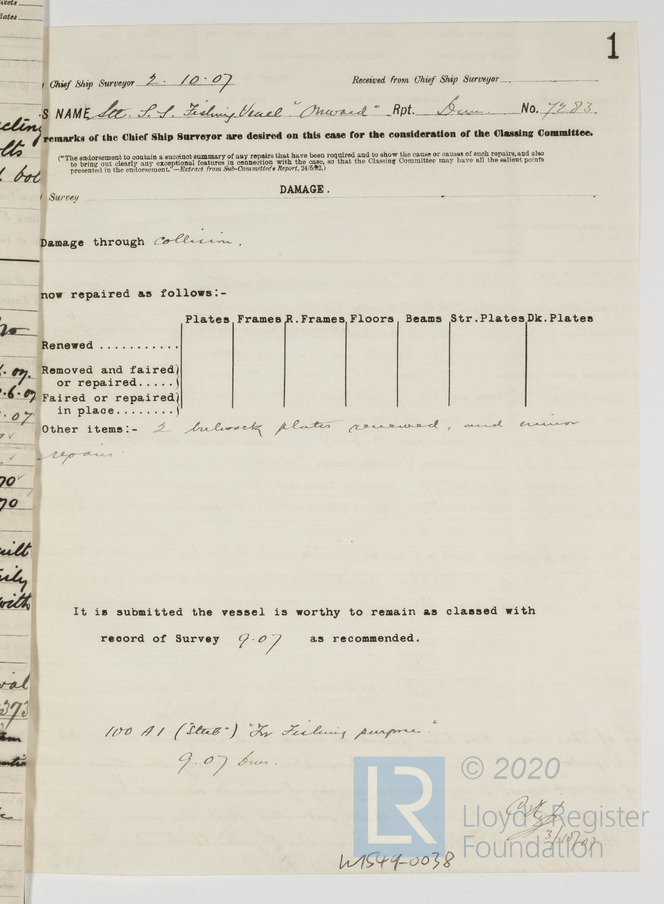 1
Chief Ship Surveyor 2.10.07 Received from Chief Ship Surveyor
S NAME Stl. S.S. Fishing Vessel "Onward" Rpt. Dun. No. 7283.
remarks of the Chief Ship Surveyor are desired on this case for the consideration of the Classing Committee.
("The endorsement to contain a succinct summary of any repairs that have been required and to show the cause or causes of such repairs, and also
to bring out clearly any exceptional features in connection with the case, so that the Classing Committee may have all the salient points
presented in the endorsement."—Extract from Sub-Committee's Report, 24/5/92.)
Survey DAMAGE.
Damage through collision.
now repaired as follows:-
Plates Frames R.Frames Floors Beams Str.Plates Dk.Plates
Renewed ...........
Removed and faired
or repaired.....
Faired or repaired
in place........
Other items:- 2 bulwark plates renewed, and minor
repairs
It is submitted the vessel is worthy to remain as classed with
record of Survey 9.07 as recommended.
100 A1 (Steel) "For Fishing purposes"
9.07 Dun.
LR © 2020
Lloyd's Register
Foundation
3/10/07
W1549-0038